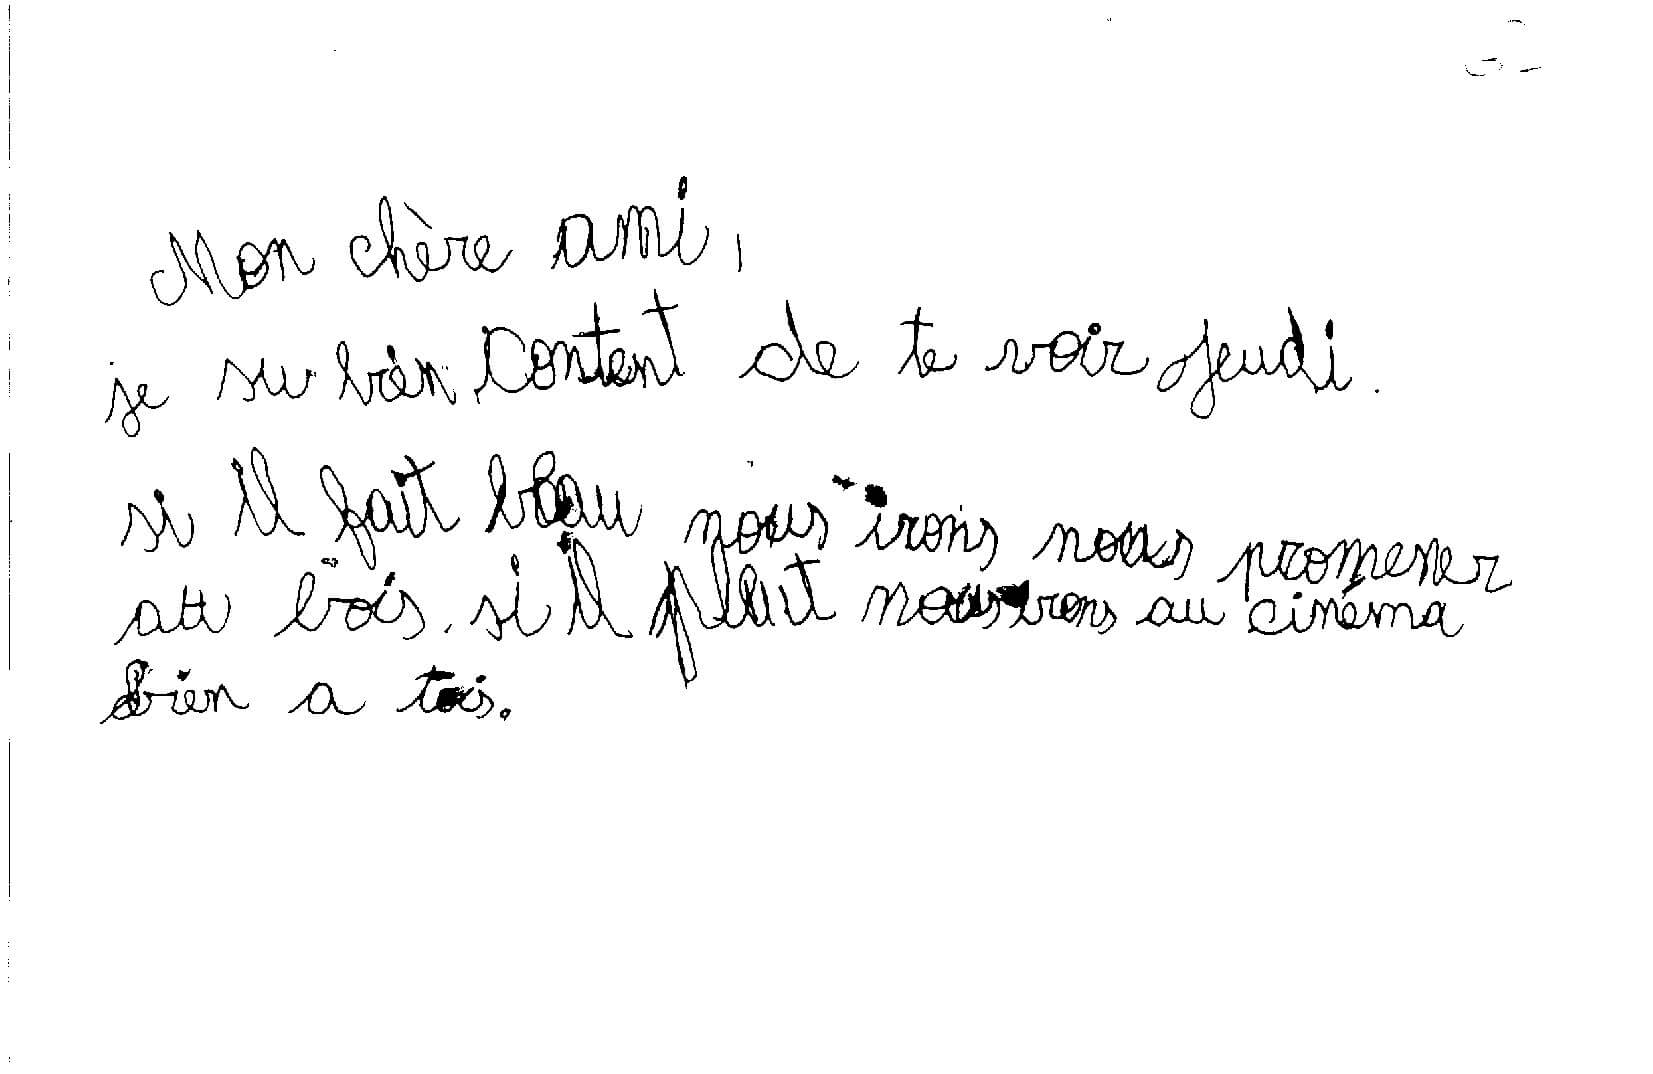 Mon chère ami,
je su bien content de te voir jeudi.
si il fait beau nous irons nous promener
au bois. si il pluit nous irons au cinéma
bien a tois.